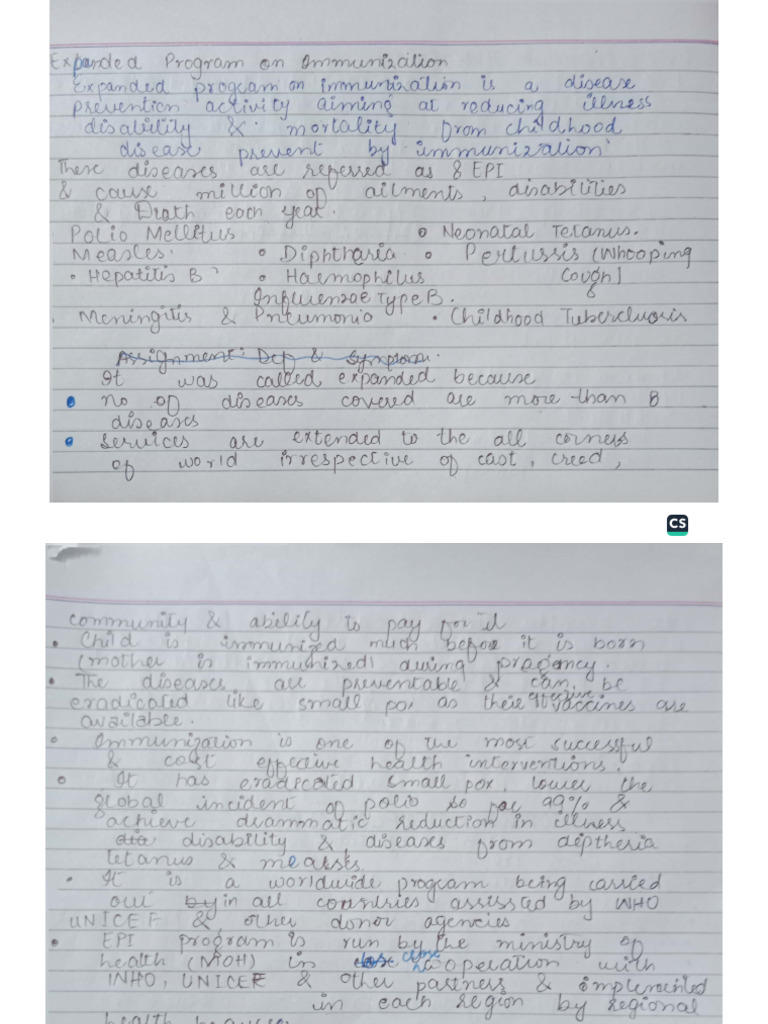 Expanded Program on Immunization
Expanded program on immunization is a disease
prevention activity aiming at reducing illness
disability & mortality from childhood
disease prevent by immunization'
These diseases are referred as 8 EPI
& cause million of ailments, disabilities
& Death each year.
Polio Mellitus • Neonatal Tetanus.
Measles. • Diphtharia • Pertussis (Whooping
• Hepatitis B • Haemophilus Cough)
Influenzae Type B. &
. Meningitis & Pneumonia • Childhood Tuberculosis
Assignment: Def & Symptom.
It was called expanded because
• no of diseases covered are more than 8
diseases
• Services are extended to the all corners
of world irrespective of cast, creed,
CS
community & ability to pay for it
• Child is immunized much before it is born
(mother is immunized) during pregency.
• The diseases are preventable & can be
eradicated like small pox as their effective vaccines are
available.
• Immunization is one of the most successful
& cost effective health interventions.
• It has eradicated small pox, lower the
global incident of polio so far 99% &
achieve drammatic reduction in illness
dis disability & diseases from diptheria
tetanus & measles
• It is a worldwide program being carried
out by in all countries assessed by WHO
UNICEF & other donor agencies
• EPI program is run by the ministry of
health (MOH) in close cooperation with
WHO, UNICEF & other partners & implemented
in each region by regional
health